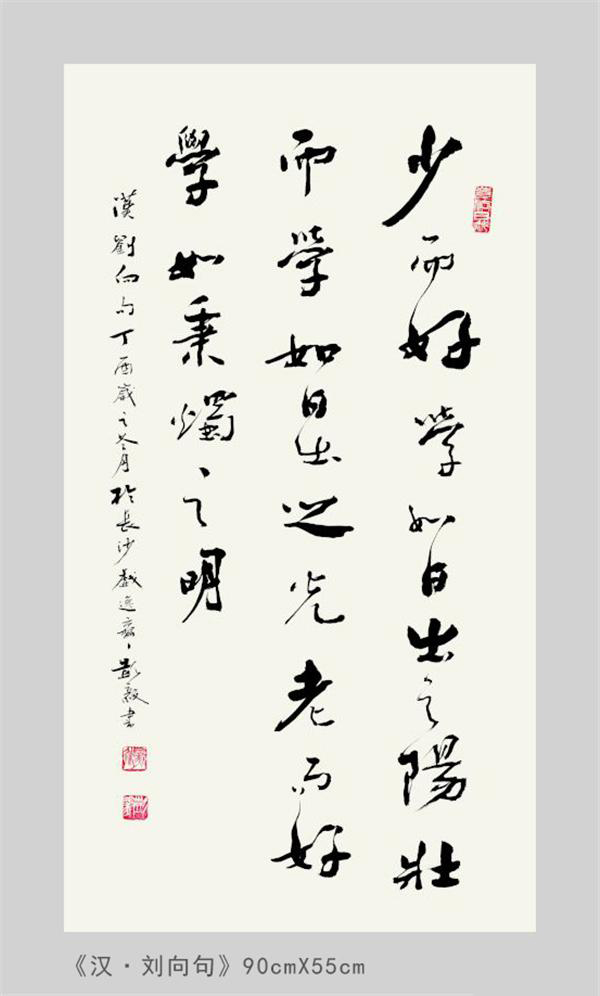 少而好學如日出之陽壯
而學如日出之光老而好
學如秉燭之明
漢劉向句丁酉歲之冬月於長沙戲逸齋彭毅書
《汉·刘向句》90cmX55cm